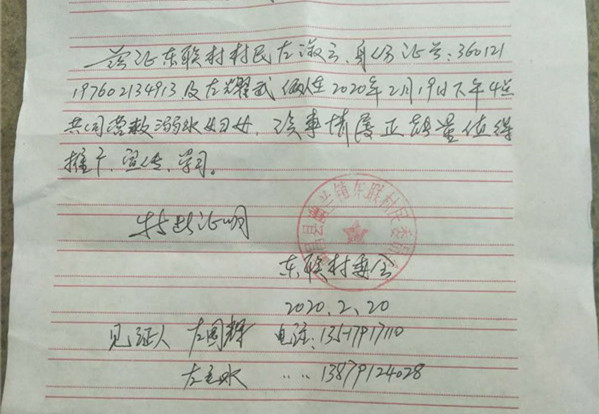 兹证东联村村民左淑云、身份证号:360121
197602134913及左耀武俩人在2020年2月19日下午4点
共同营救溺水妇女,该事情属正能量值得
推广、宣传、学习。
特此证明
县兰镇东联村民委员会
东联村委会
2020.2.20
见证人 左国辉 电话:13517917110
左 水 ‥‥ 13879124028